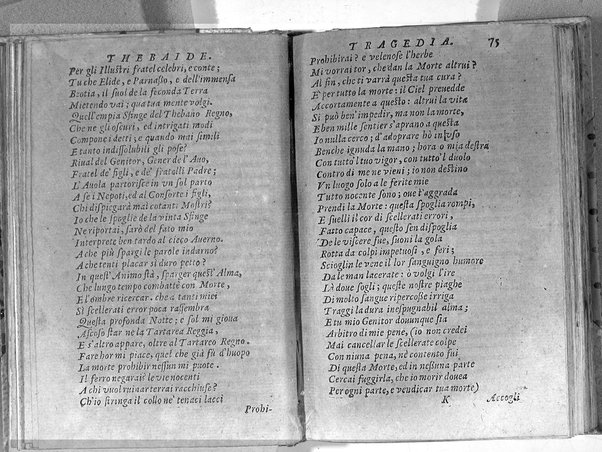 THEBAIDE.
Per gli Illustri fratel celebri, e conte;
Tu che Elide, e Parnasso, e dell'immensa
Beotia, il suol de la feconda Terra
Mietendo vai; quà tua mente volgi.
Quell'empia Sfinge del Thebano Regno,
Che ne gli oscuri, ed intrigati modi
Componei detti; e quando mai simili
E tanto indissolubili gli pose?
Riual del Genitor, Gener de l'Auo,
Fratel de' figli, e de' fratelli Padre;
L'Auola partorisce in vn sol parto
A se i Nepoti, ed al Consorte i figli,
Chi dispiegarà mai cotanti Mostri?
Io che le spoglie de la vinta Sfinge
Ne riportai, sarò del fato mio
Interprete ben tardo al cieco Auerno.
A che più spargi le parole indarno?
A che tenti placar sì duro petto?
In quest'Animo stà, sparger quest'Alma,
Che lungo tempo combattè con Morte,
E l'ombre ricercar. che a tanti miei
Sì scellerati error poca rassembra
Questa profonda Notte; e sol mi gioua
Ascoso star ne la Tartarea Reggia,
E s'altro appare, oltre al Tartareo Regno.
Fare hor mi piace, quel che già fù d'huopo
La morte prohibir nessun mi puote.
Il ferro negarai? le vie nocenti
A chi vuol ruinar terrai racchiuse?
Ch'io stringa il collo ne' tenaci lacci
Prohi-
TRAGEDIA. 75
Prohibirai? e velenose l'herbe
Mi vorrai tor, che dan la Morte altrui?
Al fin, che ti varrà questa tua cura?
E' per tutto la morte: il Ciel preuedde
Accortamente a questo: altrui la vita
Si può ben' impedir, ma non la morte,
E ben mille sentier s'aprano a questa
Io nulla cerco; d'adoprare hò in vso
Benche ignuda la mano; hora o mia destra
Con tutto'l tuo vigor, con tutto'l duolo
Contro di me ne vieni; io non destino
Vn luogo solo a le ferite mie
Tutto nocente sono; oue t'aggrada
Prendi la Morte: questa spoglia rompi,
E suelli il cor di scellerati errori,
Fatto capace, questo sen dispoglia
De le viscere sue, suoni la gola
Rotta da colpi impetuosi, e feri;
Scioglin le vene il lor sanguigno humore
Da le man lacerate: ò volgi l'ire
Là doue sogli; queste nostre piaghe
Di molto sangue ripercosse irriga
Traggi la dura inespugnabil alma;
E tu mio Genitor douunque sia
Arbitro di mie pene, (io non credei
Mai cancellar le scellerate colpe
Con niuna pena, nè contento fui
Di questa Morte, ed in nessuna parte
Cercai fuggirla, che io morir douea
Per ogni parte, e vendicar tua morte)
K Accogli